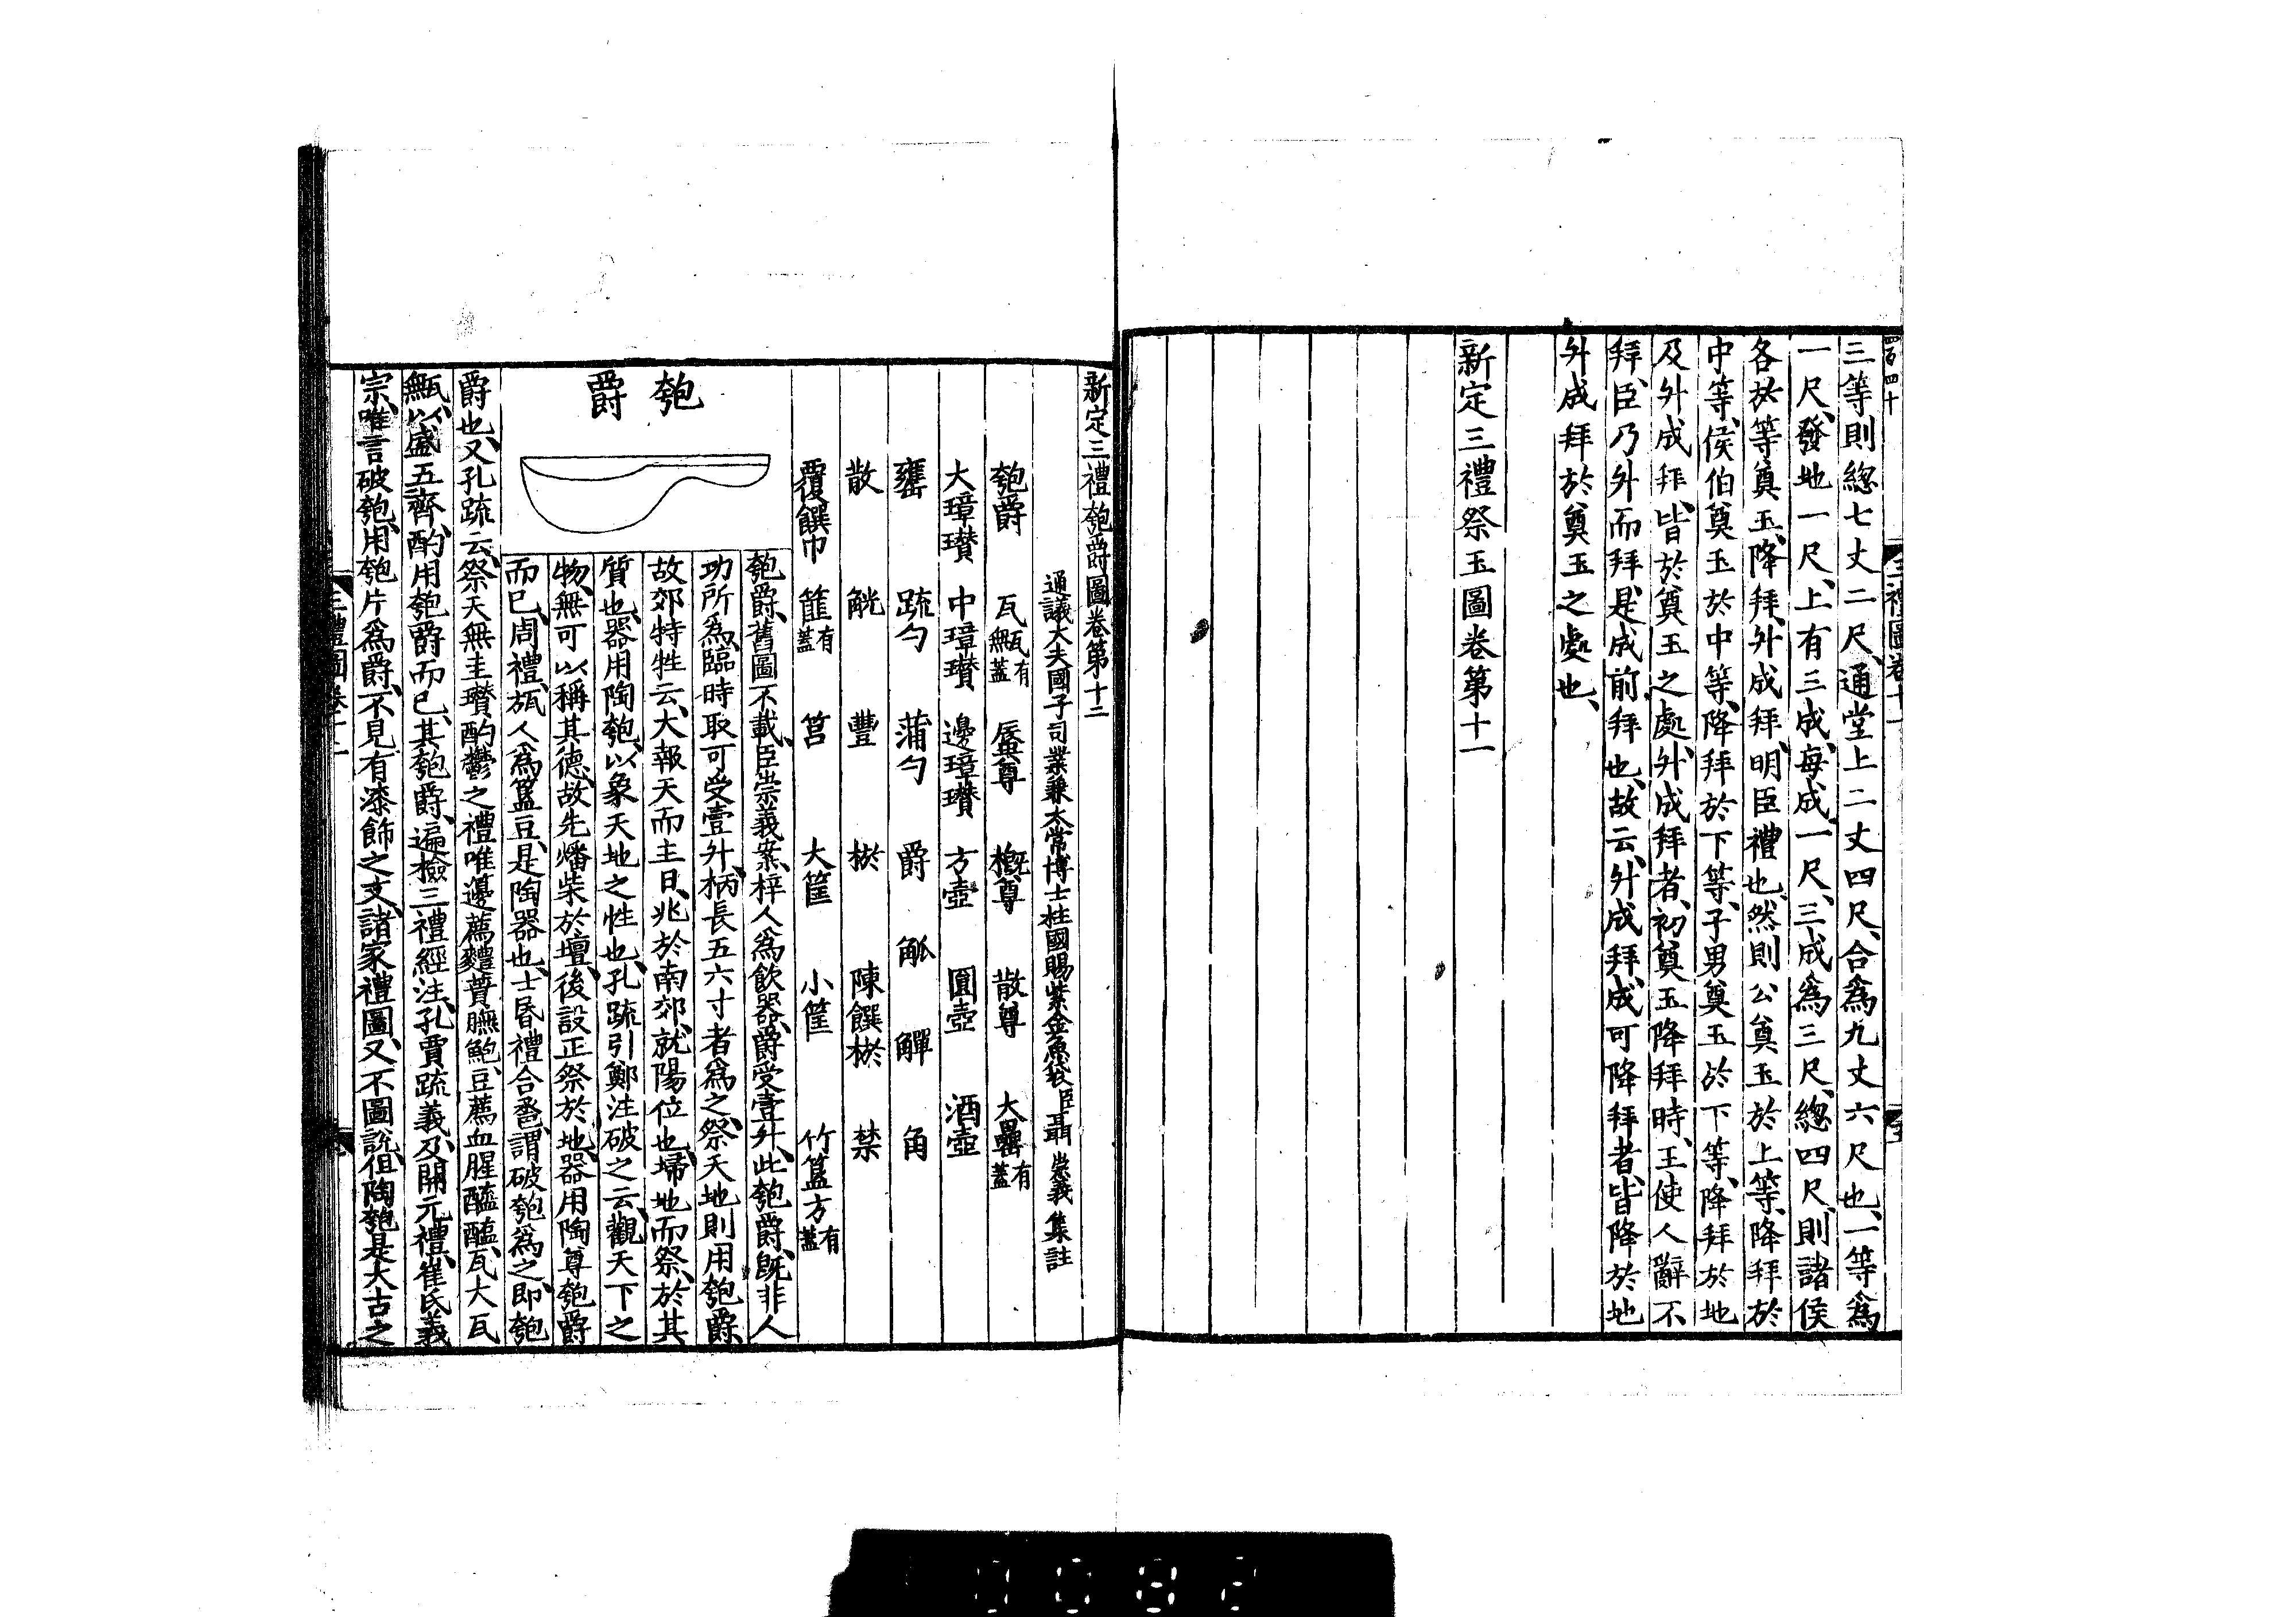 三等則緫七丈二尺、通堂上二丈四尺、合為九丈六尺也、一等為
一尺、發地一尺、上有三成、每成一尺、三成為三尺、緫四尺、則諸侯
各於等奠玉、降拜、升成拜、明臣禮也、然則公奠玉於上等、降拜於
中等、侯伯奠玉於中等、降拜於下等、子男奠玉於下等、降拜於地
及升成拜、皆於奠玉之處、升成拜者、初奠玉降拜時、王使人辭不
拜、臣乃升而拜、是成前拜也、故云、升成拜、成可降拜者、皆降於地
升成拜於奠玉之處也、
新定三禮祭玉圖卷第十一
新定三禮匏爵圖卷第十二
通議大夫國子司業兼太常博士柱國賜紫金魚袋臣聶崇義集註
匏爵 瓦甒有蓋 蜃尊 概尊 散尊 大罍有蓋
大璋瓚 中璋瓚 邊璋瓚 方壺 圓壺 酒壺
罋 疏勺 蒲勺 爵 觚 觶 角
散 觥 豐 棜 陳饌棜 禁
覆饌巾 篚有蓋 筥 大筐 小筐 竹簋方有蓋
匏爵
匏爵、舊圖不載、臣崇義案、梓人為飲器、爵受壹升、此匏爵、既非人
功所為、臨時取可受壹升、柄長五六寸者為之、祭天地則用匏爵、
故郊特牲云、大報天而主日、兆於南郊、就陽位也、埽地而祭、於其
質也、器用陶匏、以象天地之性也、孔疏引鄭注破之云、觀天下之
物、無可以稱其德、故先燔柴於壇、後設正祭於地、器用陶尊匏爵
而已、周禮、瓬人為簋豆、是陶器也、士昏禮合巹、謂破匏為之、即匏
爵也、又孔疏云、祭天無圭瓚酌鬱之禮唯邊薦麷蕡膴鮑、豆薦血腥醓醢、瓦大瓦
甒、以盛五齊、酌用匏爵而已、其匏爵、遍檢三禮經注、孔賈疏義、及開元禮、崔氏義
宗、唯言破匏、用匏片為爵、不見有漆飾之文、諸家禮圖、又不圖說、但陶匏是大古之
三禮圖卷十二